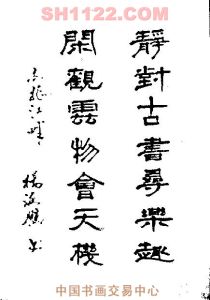 SH1122.COM
靜對古書尋樂趣
閑觀雲物會天機
中国书画交易中心